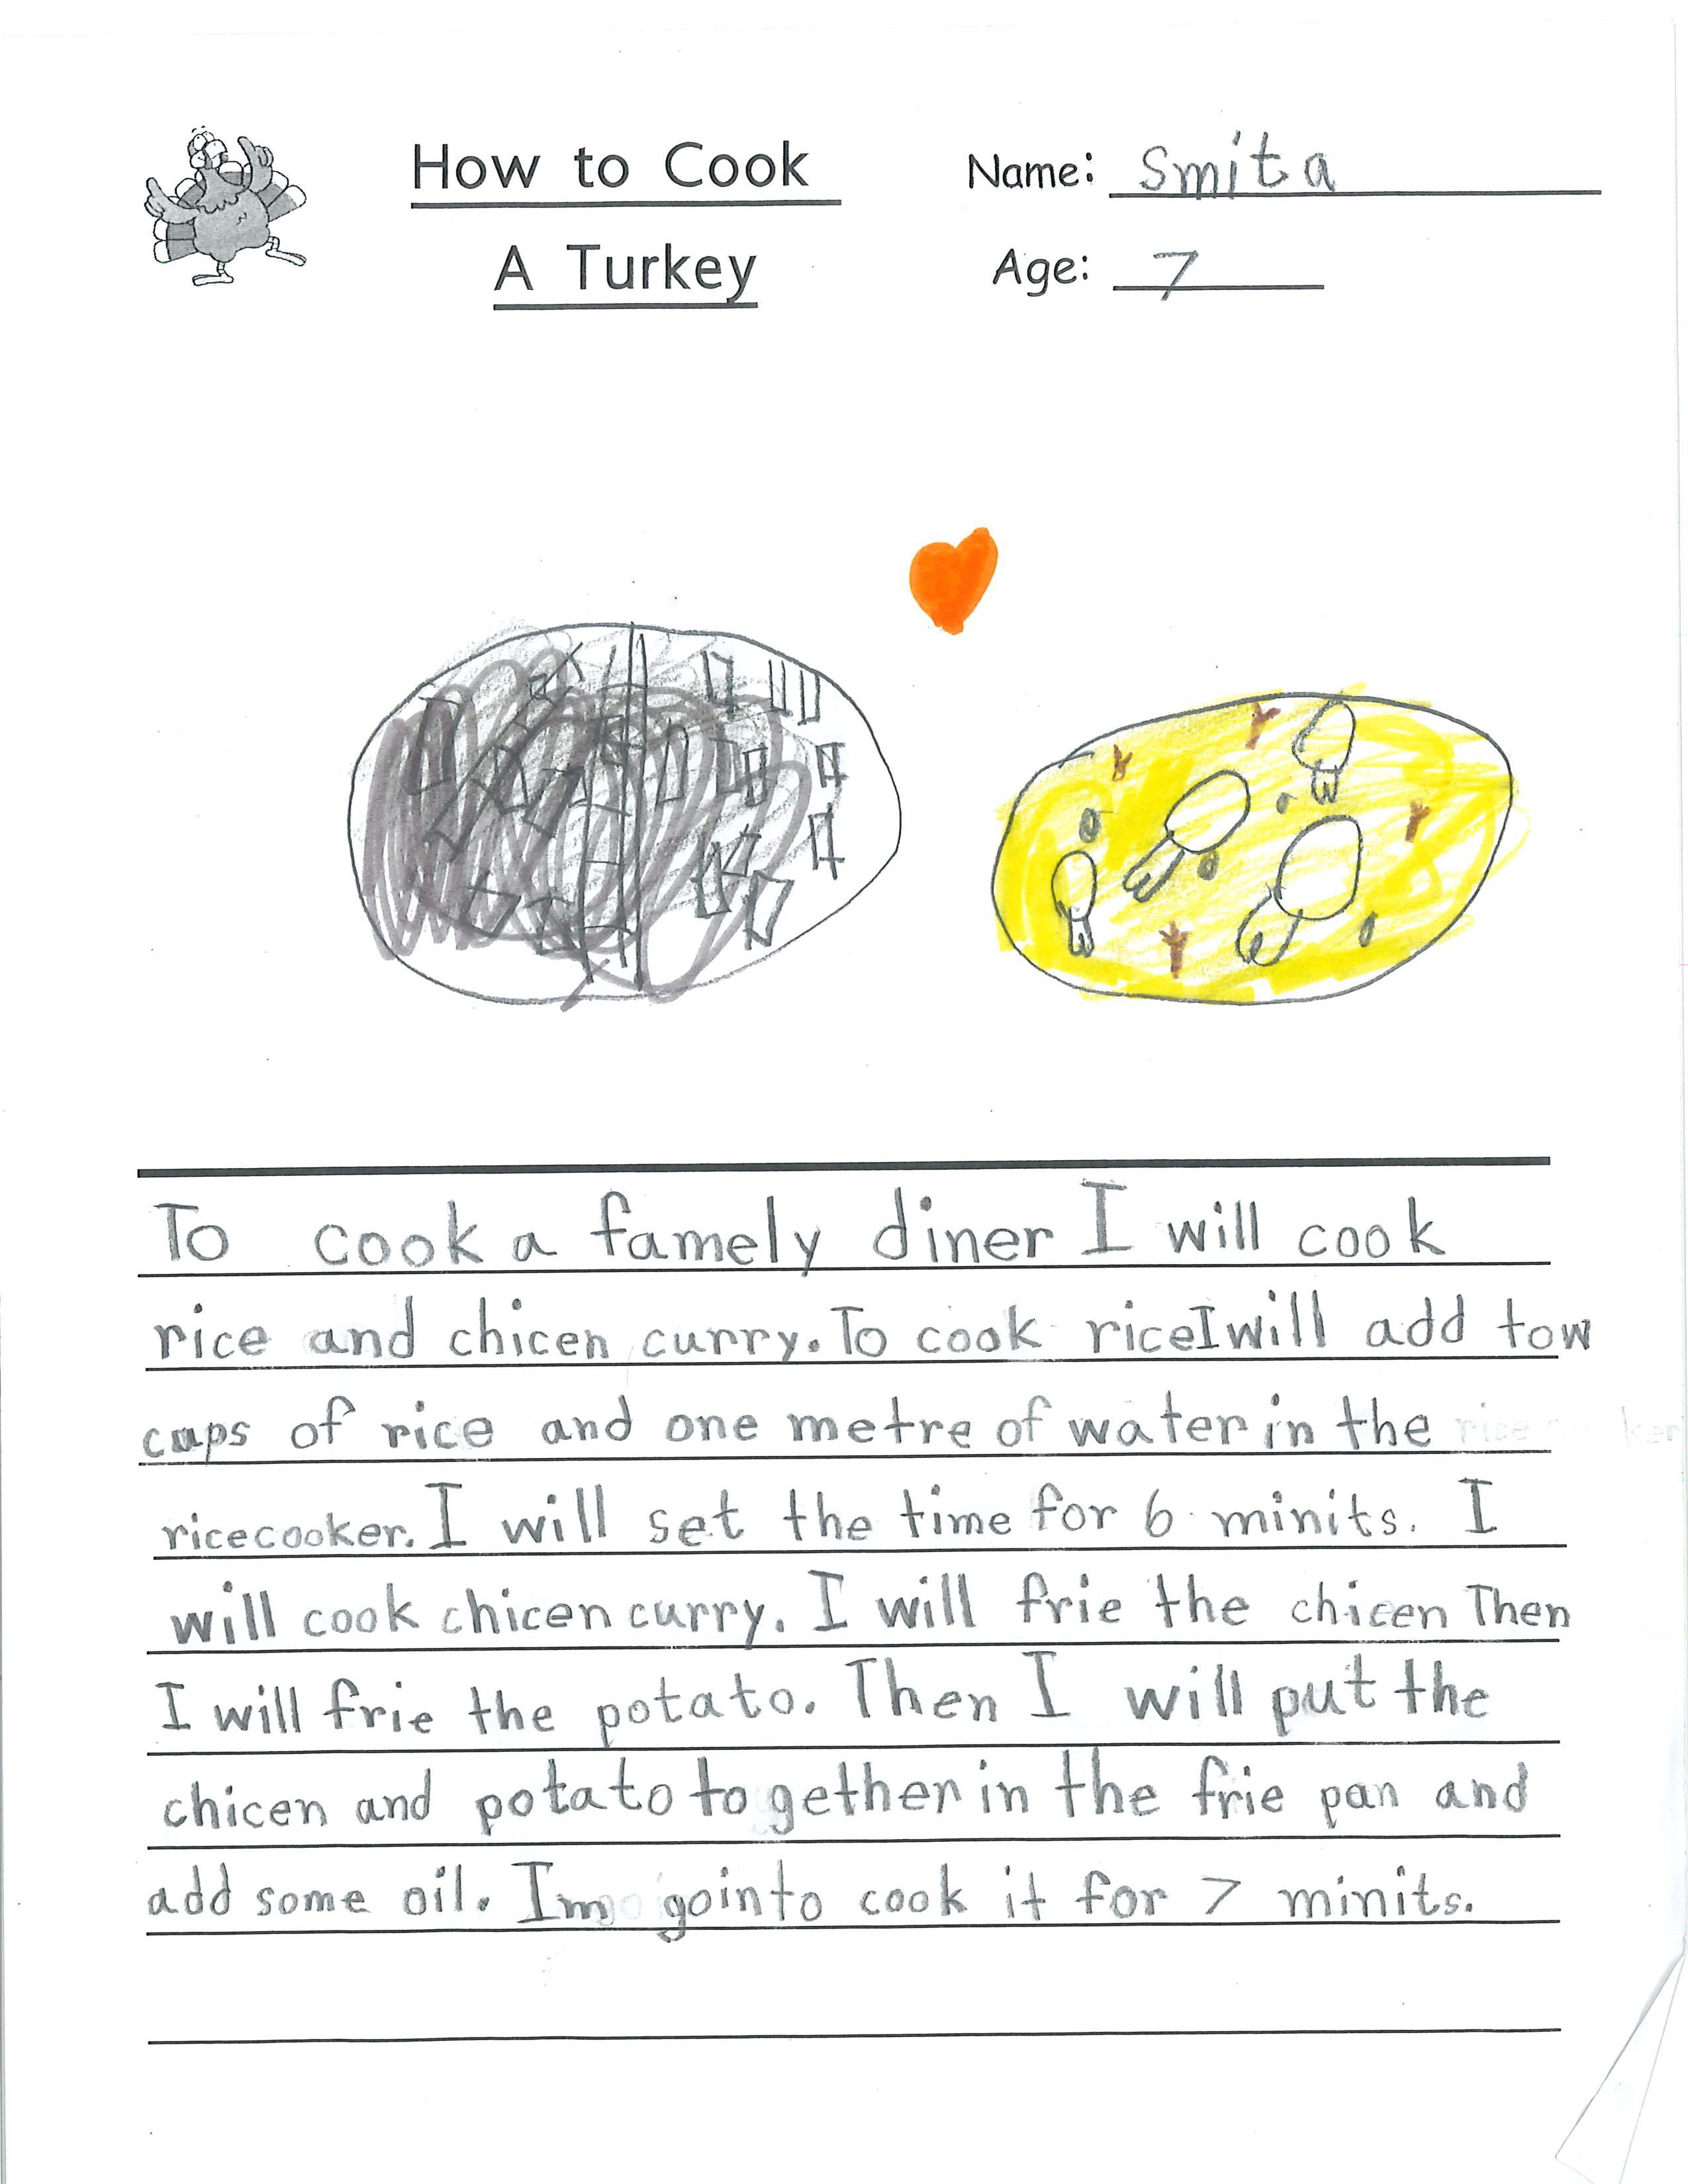 How to Cook
A Turkey
Name: Smita
Age: 7
To cook a famely diner I will cook
rice and chicen curry. To cook riceIwill add tow
cups of rice and one metre of water in the
ricecooker. I will set the time for 6 minits. I
will cook chicen curry. I will frie the chicen Then
I will frie the potato. Then I will put the
chicen and potato together in the frie pan and
add some oil. Im gointo cook it for 7 minits.